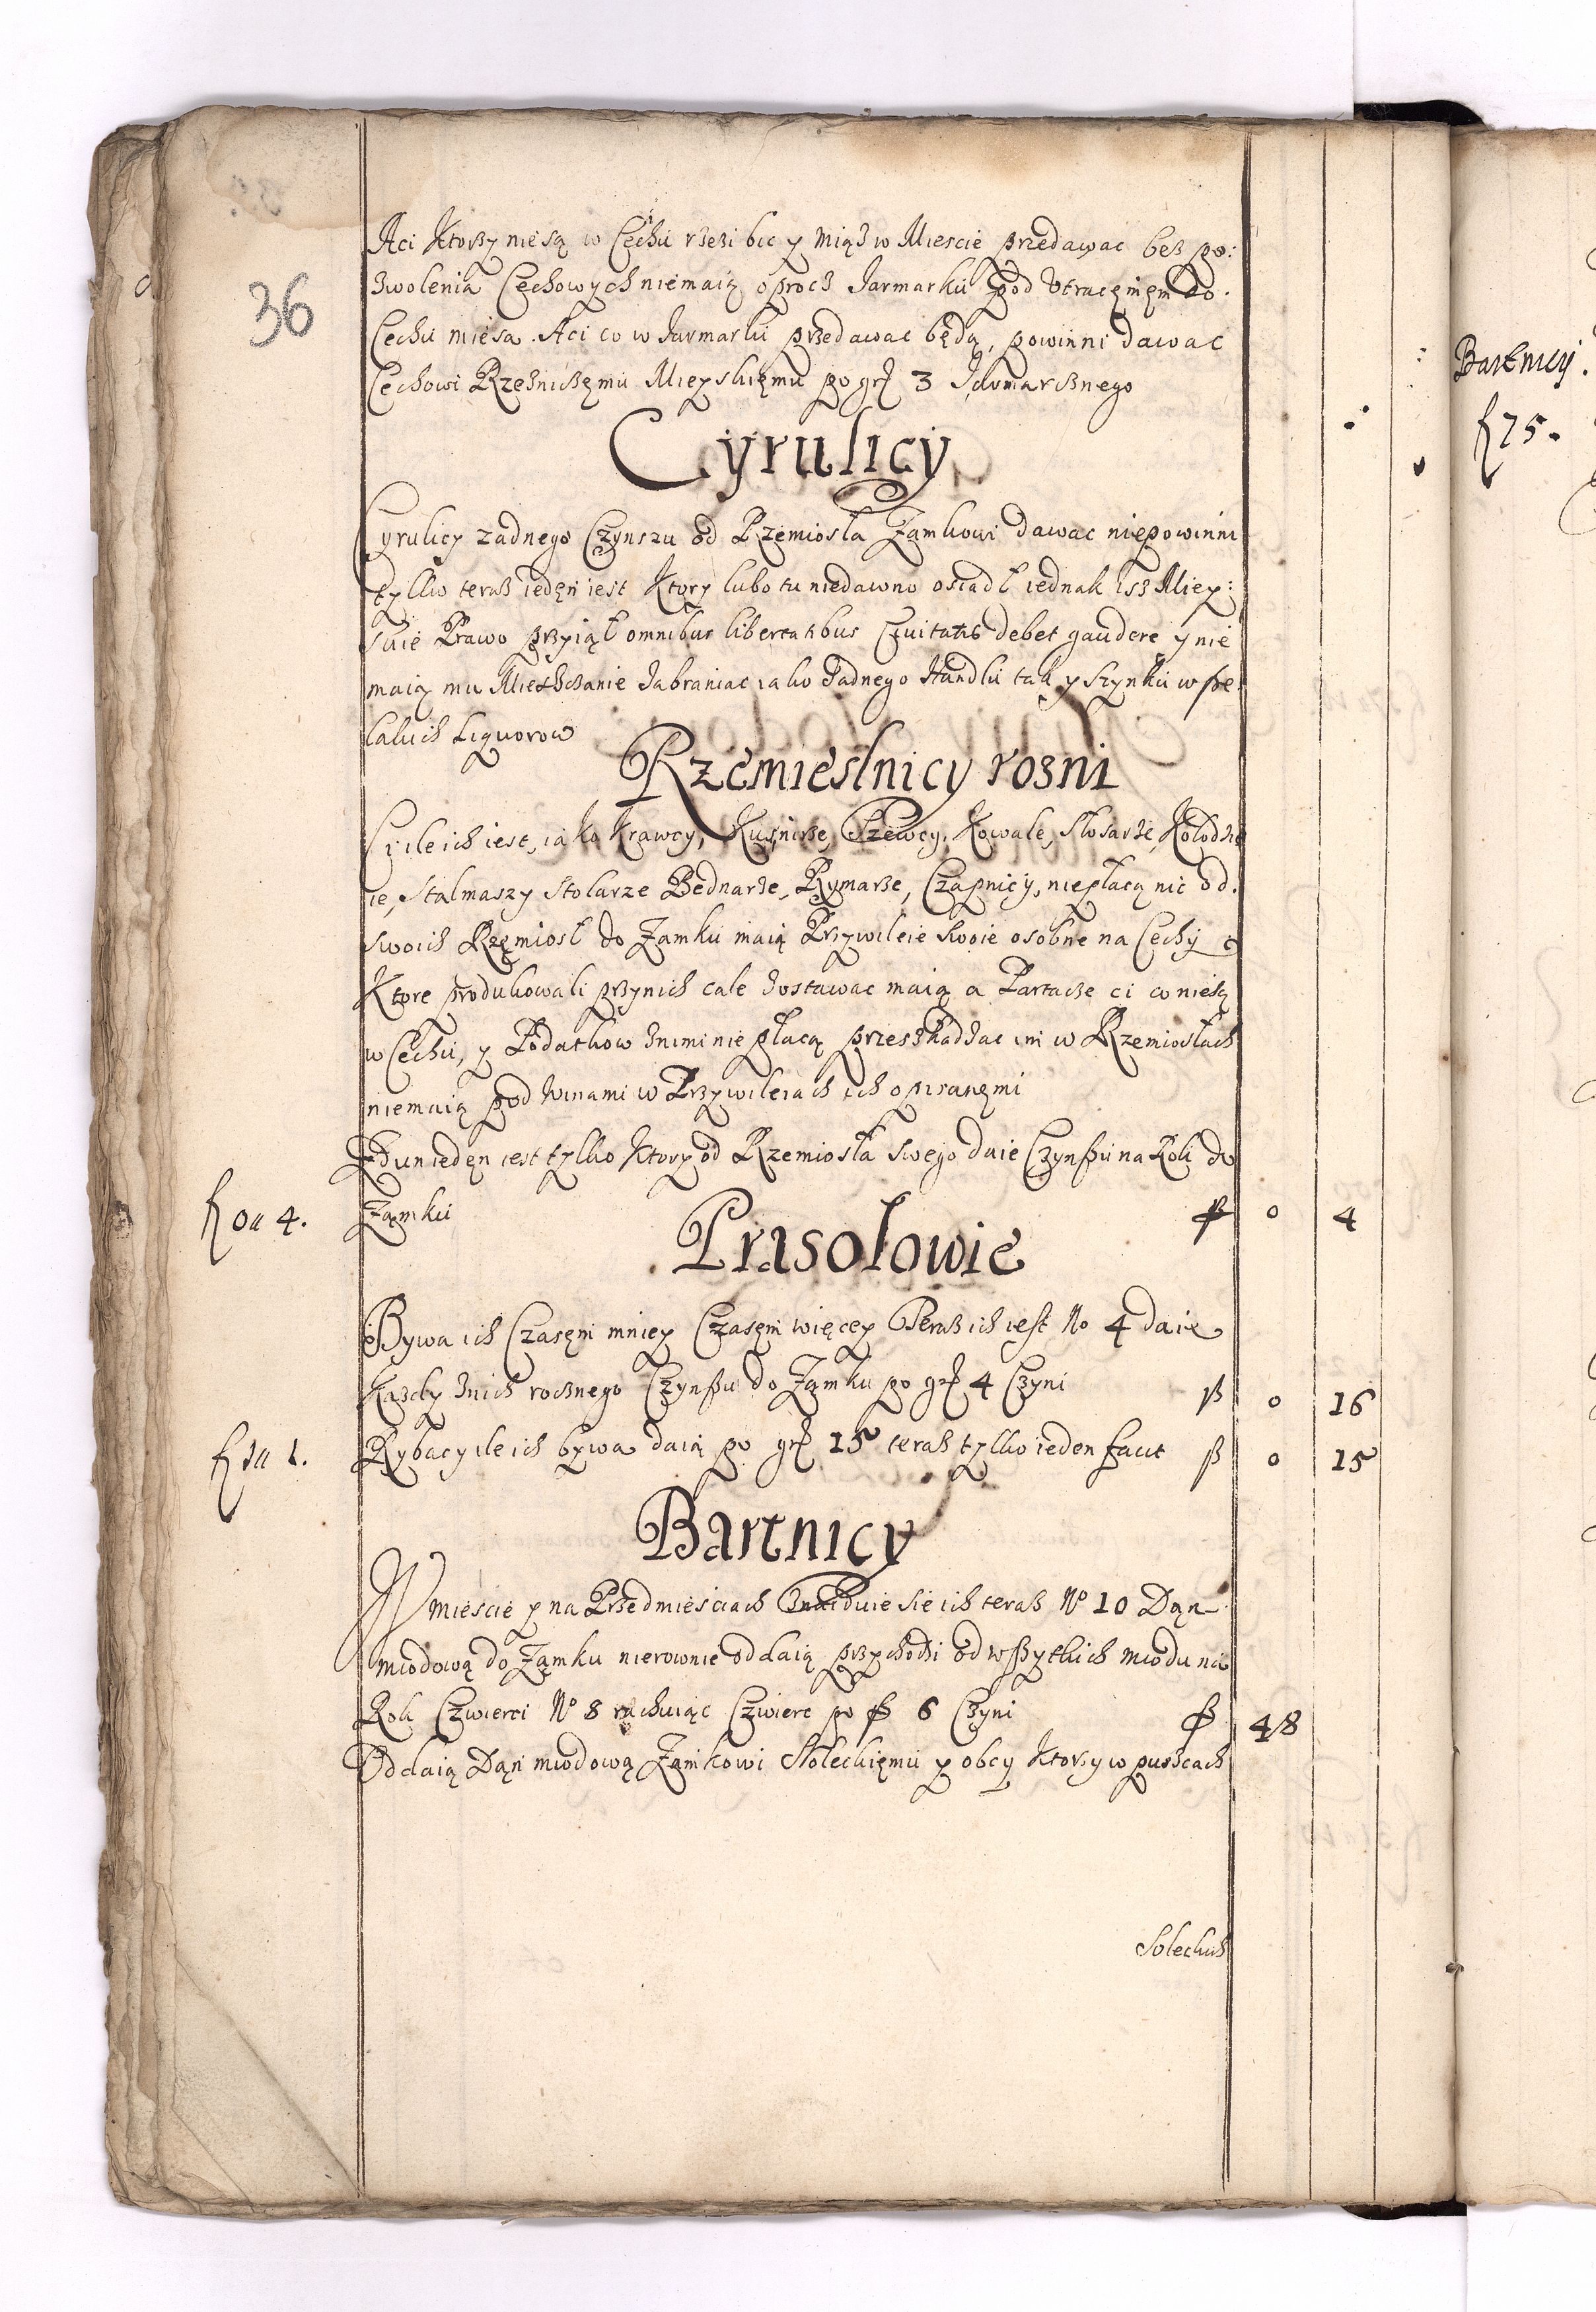 36
Aci Ktorzy nie są w Cechu rzezi bic y miąs w Miescie przedawac bez po:
zwolenia Cechowych niemaią oprocz Jarmarku pod utracęnięm do
Cechu miesa. Aci co w Jarmarku przedawac będą, powinni dawac
Cechowi Rzeźniczęmu Mieyskięmu po gr 3 Jarmarcznego
Cyrulicy
Cyrulicy zadnego Czynszu od Rzemiosła Zamkowi dawac niepowinni
tylko teraß iedęn iest Ktory lubo tu niedawno osiadł iednak isz Miey:
skie Prawo przyiął omnibus libertatibus Civitatis debet gaudere y nie
maią mu Mieszczanie zabraniac iako żadnego Handlu tak y szynku wße
lakich Liquorow
Rzemieslnicy rozni
ile ich iest, iako Krawcy, Kusnirze, Szewcy, Kowale, Slosarze, Kołodzie
ie, Stalmaszy Stolarze Bednarze, Rymarze, Czapnicy, niepłacą nic od
swoich Rzęmiosł do Zamku maią Przywileie swoie osobne na Cechy
Ktore produkowali przynich cale zostawac maią a Partacze ci co nie są
w Cechu, y Podatkow znimi nie płacą przeszkadzac im w Rzemiosłach
niemaią pod winami w Przywileiach ich opisanęmi
Zdun iedęn iest tylko Ktory od Rzemiosła swego daie Czynßu na Rok do
f on 4. Zamku ß 0 4
Prasołowie
Bywa ich Czasęm mniey Czasęm więcey Teraß ich iest No 4 daie
Kazdy znich rocznego Czynßu do Zamku po gr 4 Czyni ß 0 16
Rybacy ile ich bywa daią po gr 15 teraß tylko ieden facit ß 0 15
Bartnicy
W miescie y na Przedmiesciach Znaiduie sie ich teraß No 10 Dąn
miodową do Zamku nierownie oddaią przychodzi od wßytkich miodu na
Rok Czwierci No 8 rachuiąc Czwierc po ß 6 Czyni ß 48
Oddaią Dąn miodową Zamkowi Soleckięmu y obcy Ktorzy w puszczach
Soleckich
Bartnicy.
f 75.